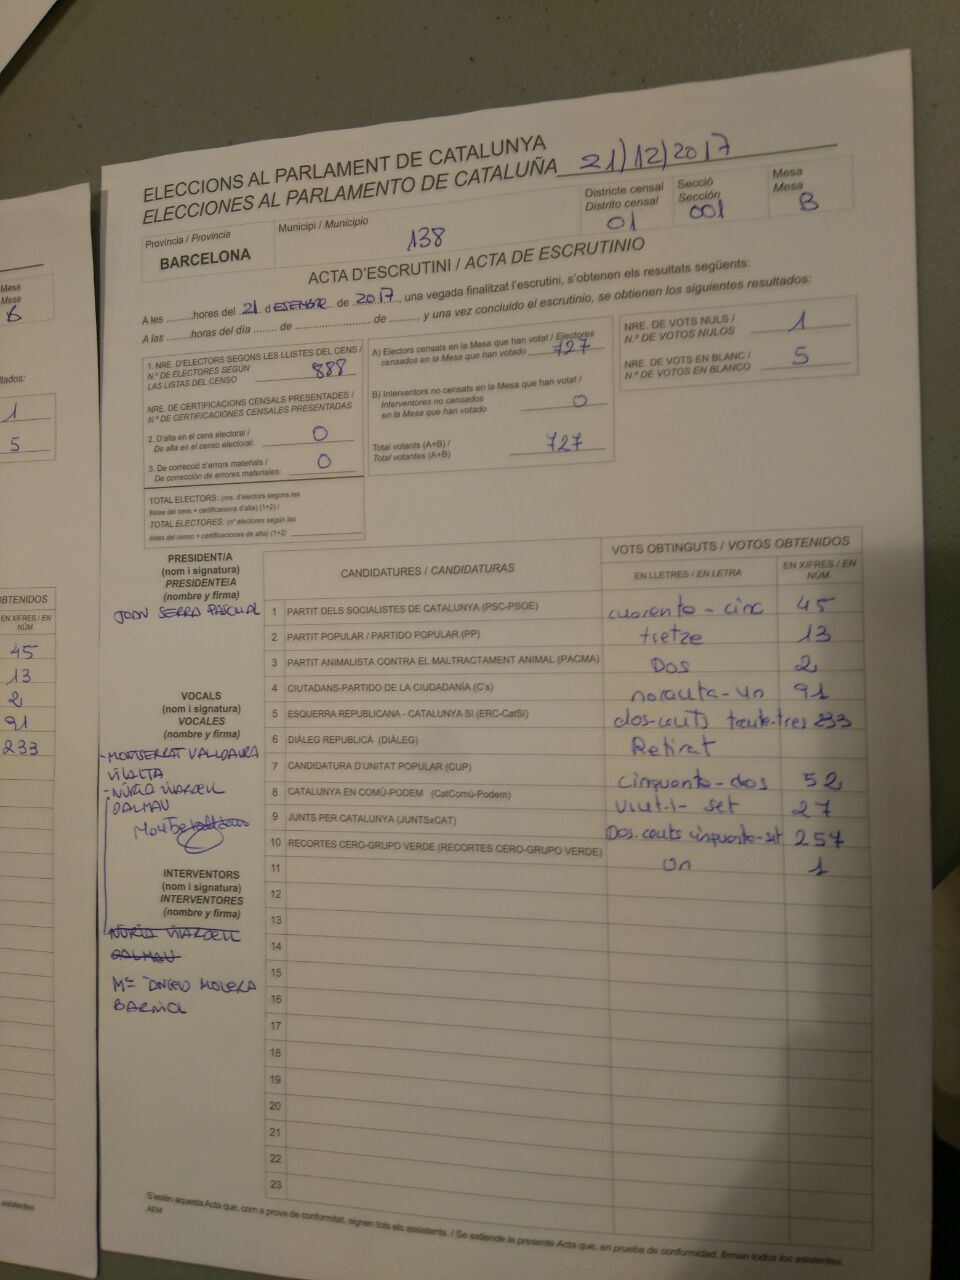 ELECCIONS AL PARLAMENT DE CATALUNYA
ELECCIONES AL PARLAMENTO DE CATALUÑA 21/12/2017
Provincia / Provincia
BARCELONA
Municipi / Municipio
138
Districte censal
Distrito censal
01
Secció
Sección
001
Mesa
Mesa
B
ACTA D'ESCRUTINI / ACTA DE ESCRUTINIO
A les .........hores del 21 d ESEMBRE de 2017, una vegada finalitzat l'escrutini, s'obtenen els resultats següents:
A las .........horas del día ........ de ........................ de .........., y una vez concluido el escrutinio, se obtienen los siguientes resultados:
1. NRE. D'ELECTORS SEGONS LES LLISTES DEL CENS /
N.º DE ELECTORES SEGÚN
LAS LISTAS DEL CENSO 888
NRE. DE CERTIFICACIONS CENSALS PRESENTADES /
N.º DE CERTIFICACIONES CENSALES PRESENTADAS
2. D'alta en el cens electoral /
De alta en el censo electoral: 0
3. De correcció d'errors materials /
De corrección de errores materiales: 0
TOTAL ELECTORS: (nre. d'electors segons les
llistes del cens + certificacions d'alta) (1+2) /
TOTAL ELECTORES: (nº electores según las
listas del censo + certificaciones de alta) (1+2)
A) Electors censats en la Mesa que han votat / Electores
censados en la Mesa que han votado 727
B) Interventors no censats en la Mesa que han votat /
Interventores no censados
en la Mesa que han votado 0
Total votants (A+B) /
Total votantes (A+B) 727
NRE. DE VOTS NULS /
N.º DE VOTOS NULOS 1
NRE. DE VOTS EN BLANC /
N.º DE VOTOS EN BLANCO 5
PRESIDENT/A
(nom i signatura)
PRESIDENTE/A
(nombre y firma)
JOAN SERRA PASCUAL
VOCALS
(nom i signatura)
VOCALES
(nombre y firma)
-MONTSERRAT VALLDAURA
VILALTA
-NÚRIA
DALMAU
INTERVENTORS
(nom i signatura)
INTERVENTORES
(nombre y firma)
NÚRIA
DALMAU
Mª MOLERA
CANDIDATURES / CANDIDATURAS
VOTS OBTINGUTS / VOTOS OBTENIDOS
EN LLETRES / EN LETRA
EN XIFRES / EN
NÚM.
1 PARTIT DELS SOCIALISTES DE CATALUNYA (PSC-PSOE) cuarenta-cinc 45
2 PARTIT POPULAR / PARTIDO POPULAR (PP) tretze 13
3 PARTIT ANIMALISTA CONTRA EL MALTRACTAMENT ANIMAL (PACMA) Dos 2
4 CIUTADANS-PARTIDO DE LA CIUDADANÍA (C's) noranta-un 91
5 ESQUERRA REPUBLICANA - CATALUNYA SI (ERC-CatSí) dos-cents trenta-tres 233
6 DIÀLEG REPUBLICÀ (DIÀLEG) Retirat
7 CANDIDATURA D'UNITAT POPULAR (CUP) cinquanta-dos 52
8 CATALUNYA EN COMÚ-PODEM (CatComú-Podem) vint-i-set 27
9 JUNTS PER CATALUNYA (JUNTSxCAT) Dos-cents cinquanta-set 257
10 RECORTES CERO-GRUPO VERDE (RECORTES CERO-GRUPO VERDE) Un 1
11
12
13
14
15
16
17
18
19
20
21
22
23
S'estén aquesta Acta que, com a prova de conformitat, signen tots els assistents. / Se extiende la presente Acta que, en prueba de conformidad, firman todos los asistentes.
AEM
Mesa
Mesa
B
1
5
EN XIFRES / EN
NÚM.
45
13
2
91
233
asistentes